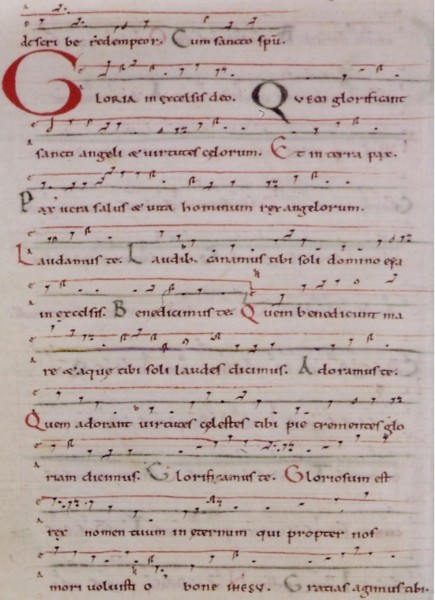 descri be redemptor. Cum sancto spu.
GLORIA in excelsis deo. Quem glorificant
sancti angeli & virtutes celorum. Et in terra pax.
Pax vera salus & vita hominum rex angelorum.
Laudamus te. Laudib. canamus tibi soli domino
in excelsis. Benedicimus te. Quem benedicunt ma
re & aque tibi soli laudes dicimus. Adoramus te.
Quem adorant virtutes celestes tibi pie trementes glo
riam dicimus. Glorificamus te. Gloriosum est
rex nomen tuum in eternum qui propter nos
mori voluisti o bone ihesu. Gratias agimus tibi.